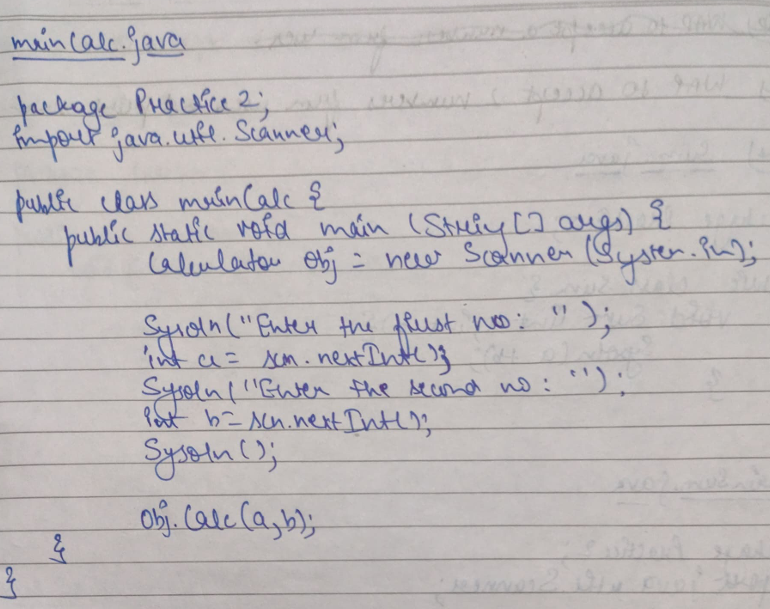 mainCalc.java
package Practice2;
import java.util.Scanner;
public class mainCalc {
public static void main (String [] args) {
Calculator obj = new Scanner (System.in);
Sysoln("Enter the first no: ");
int a = scn.nextInt();
Sysoln("Enter the second no: ");
int b = scn.nextInt();
Sysoln();
obj.Calc(a,b);
}
}